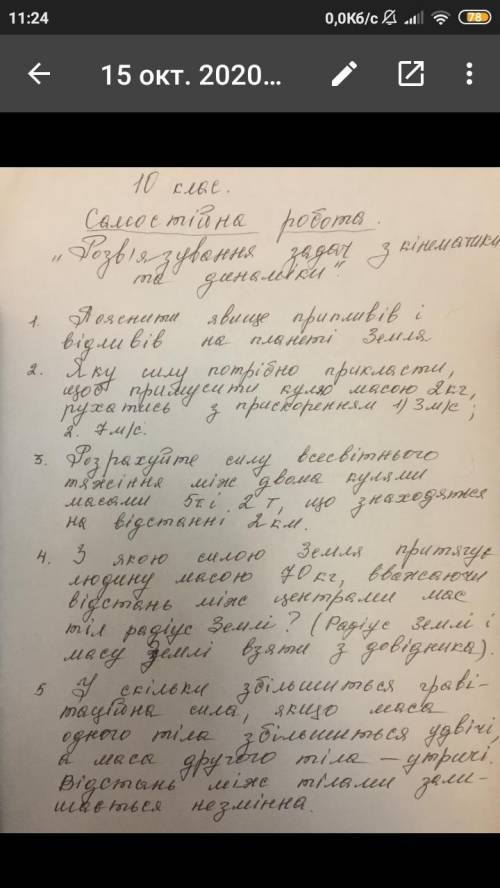 11:24
0,0Кб/с
78
15 окт. 2020...
10 клас.
Самостійна робота.
„Розв'язування задач з кінематики
та динаміки".
1. Пояснити явище припливів і
відливів на планеті Земля
2. Яку силу потрібно прикласти,
щоб примусити кулю масою 2кг,
рухатись з прискоренням 1) 3м/с;
2. 7м/с.
3. Розрахуйте силу всесвітнього
тяжіння між двома кулями
масами 5т і 2 т, що знаходяться
на відстанні 2 км.
4. З якою силою Земля притягує
людину масою 70 кг, вважаючи
відстань між центрами мас
тіл радіус Землі? (Радіус Землі і
масу Землі взяти з довідника).
5 У скільки збільшиться граві-
таційна сила, якщо маса
одного тіла збільшиться удвічі,
а маса другого тіла — утричі.
Відстань між тілами зали-
шається незмінна.